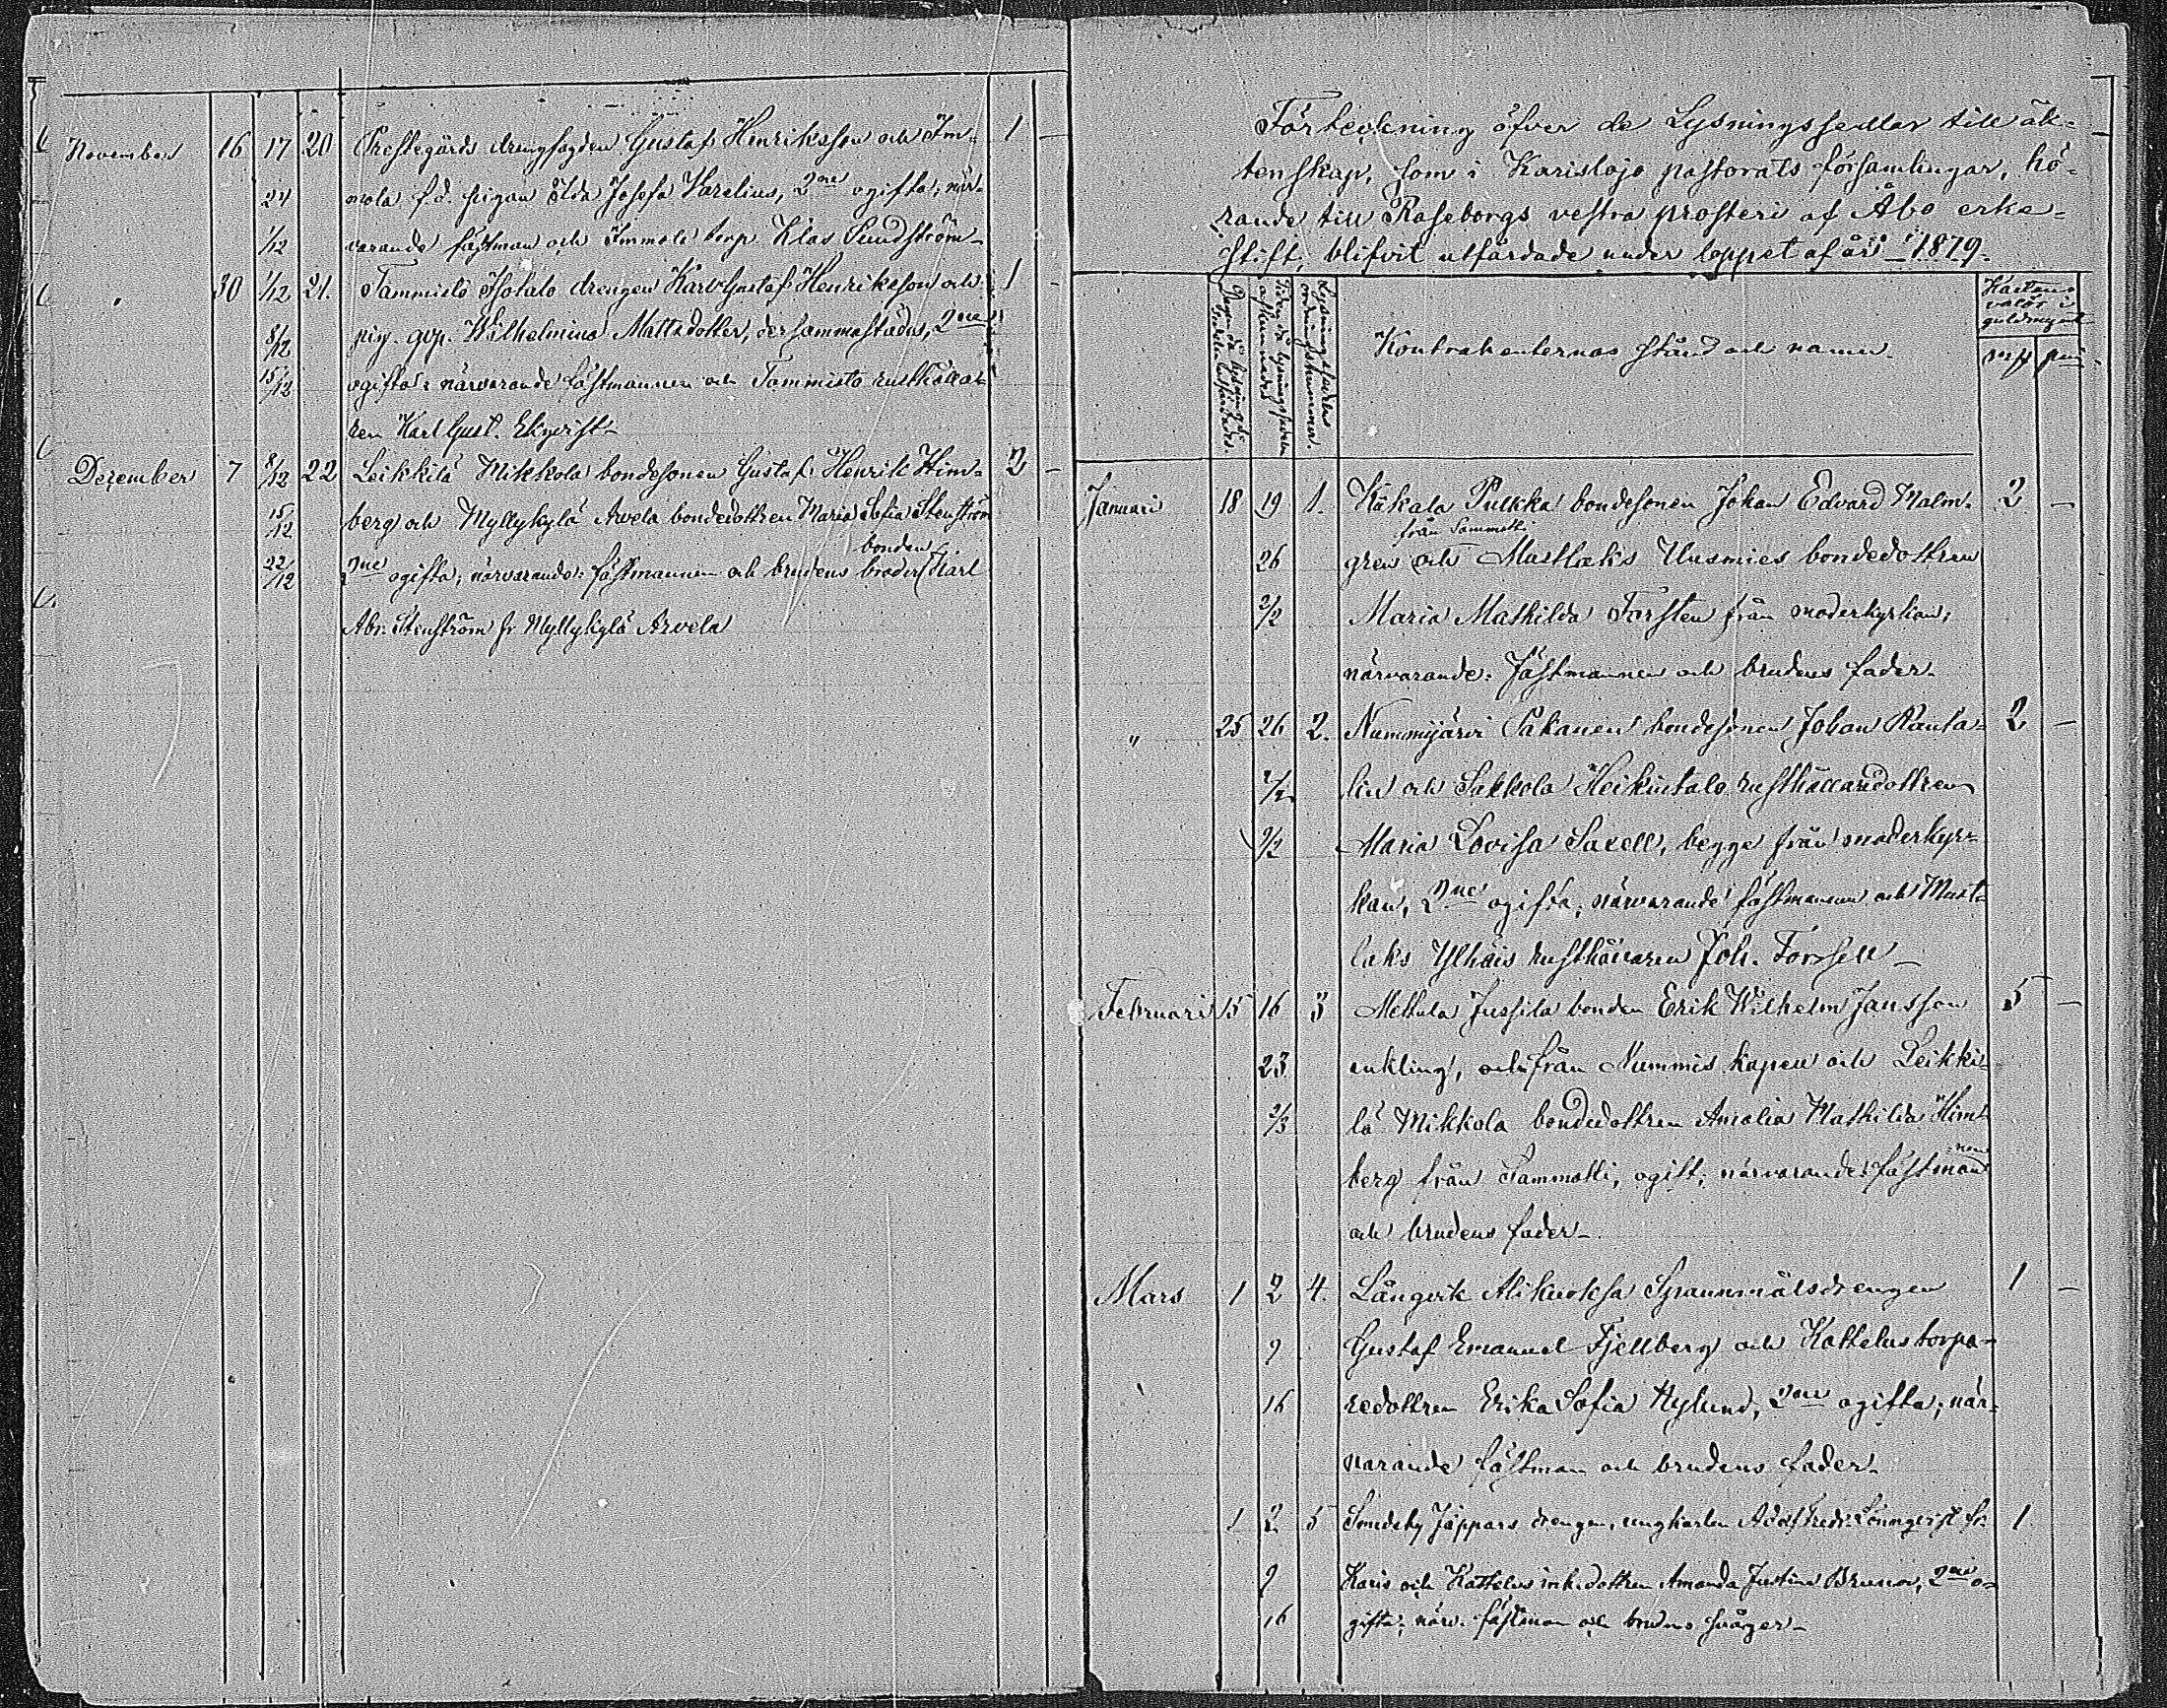 November 16 17 20 Prestegårds drengfogden Gustaf Henriksson och Im- 1 -
24 mola f.d. pigan Ida Josefa Varelius, 2ne ogifta; när-
1/12 varande fästman och Immola torp. Klas Sundström -
" 30 1/12 21. Tammisto Isotalo drengen Karl Gustaf Henriksson och 1 -
8/12 pig. Wilhelmina Mattsdotter, dersammastädes, 2ne
15/12 ogifta; närvarande fästmannen och Tammisto rusthålla-
ren Karl Gust. Ekqvist -
December 7 8/12 22 Leikkilä Mikkola bondesonen Gustaf Henrik Him- 2 -
15/12 berg och Myllykylä Arvela bondedottren Maria Sofia Stenström
bonden
22/12 2ne ogifta; närvarande: fästmannen och brudens broder Karl
Abr. Stenström fr Myllykylä Arvela
Förteckning öfver de Lysningssedlar till äk-
tenskap, som i Karislojo pastorats församlingar, hö-
rande till Raseborgs vestra prosteri af Åbo erke-
stift, blifvit utfärdade under loppet af år 1879.
Dagen då lysnings-
sedeln utfärdades.
Tiden då lysningssedeln
afkunnades
Lysningssedelns
ordningsnummer.
Kontrahenternas stånd och namn.
Kartans
valör i
guldmynt
mk pni
Januari 18 19 1. Kükala Pulkka bondesonen Johan Edvard Malm- 2 -
från Sammatti
26 gren och Mustlaks Uusmies bondedottren
2/2 Maria Mathilda Forsten från moderkyrkan;
närvarande: Fästmannen och brudens fader -
" 25 26 2. Nummijärvi Pakanen bondesonen Johan Ranta- 2 -
2/2 lin och Sakkola Heikintalo rusthållaredottren
9/2 Maria Lovisa Saxell, begge från moderkyr-
kan, 2ne ogifta; närvarande fästmannen och Must-
laks Ylhäis rusthållaren Joh. Forssell -
Februari 15 16 3 Mettula Jussila bonden Erik Wilhelm Jansson 5 -
23 enkling, och från Nummis kapell och Leikki-
2/3 lä Mikkola bondedottren Amalia Mathilda Him-
berg från Sammatti, ogift; närvarande: fästmannen
och brudens fader -
Mars 1 2 4. Långvik Alikuoksa Spannmålsdrengen 1 -
9 Gustaf Emanuel Fjellberg och Kattelus torpa-
16 redottren Erika Sofia Nylund, 2ne ogifta; när-
varande fästman och brudens fader -
1 2 5 Smedsby Jäppars drengen, ungkarlen Adolf Fredr. Lönnqvist fr. 1
9 Karis och Kattelus inh.dottren Amanda Justina Brunou, 2ne o-
16 gifta; närv. fästman och brudens svåger -